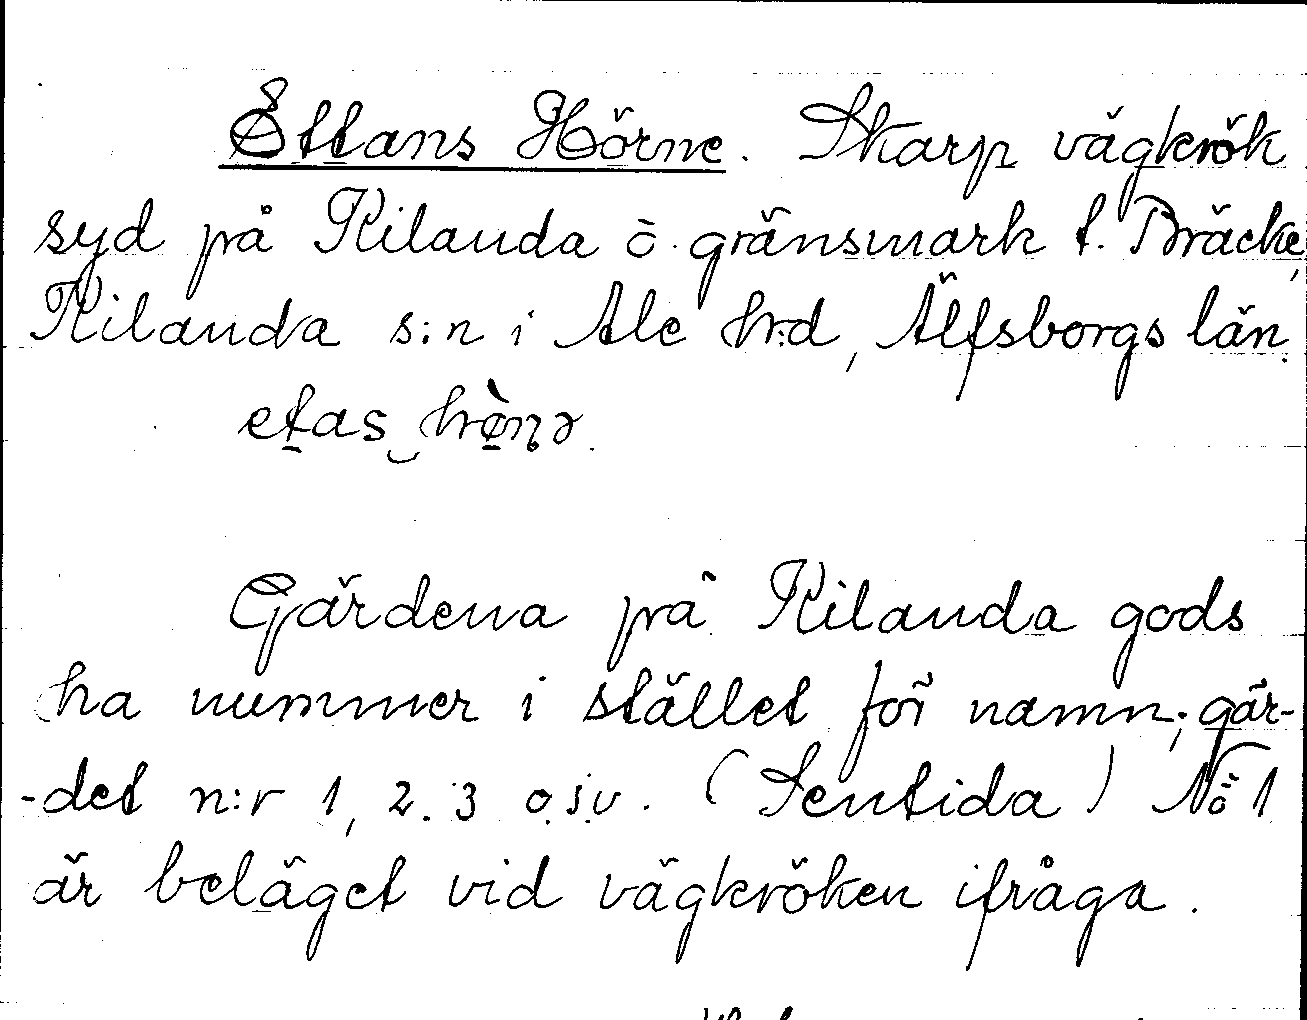 Ettans Hörne. Skarp vägkrök
syd på Kilanda ō. gränsmark t. Bräcke,
Kilanda s:n i Ale hrd, Älfsborgs län.
etas hènə.
Gärdena på Kilanda gods
ha nummer i stället för namn; gär-
-det n:r 1, 2. 3 o.s.v. (Sentida) No 1
är beläget vid vägkröken ifråga.